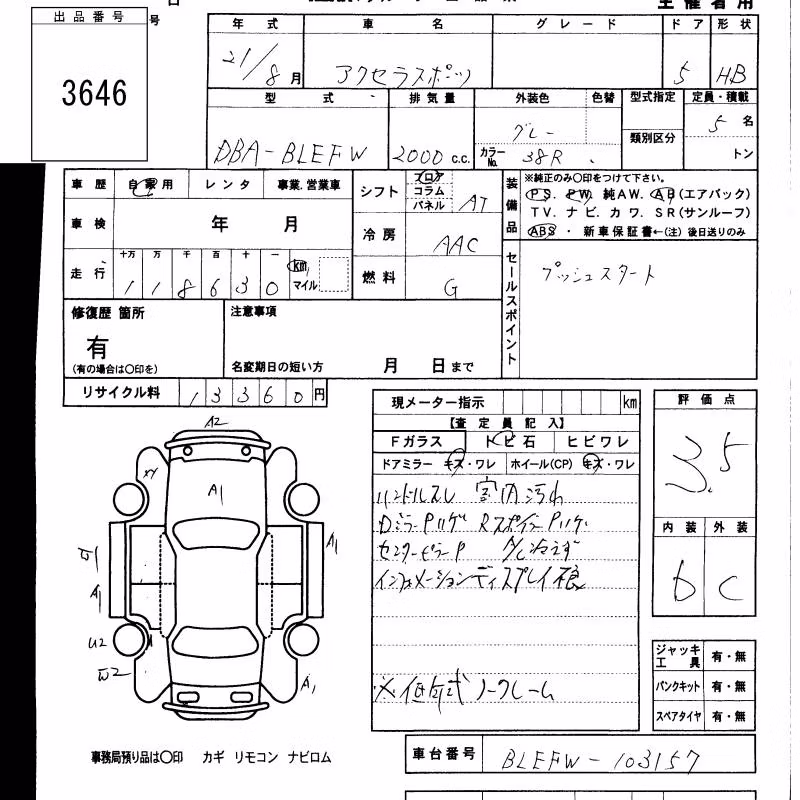 主催者用
出品番号
号
3646
年式 車名 グレード ドア 形状
21/8月 アクセラスポーツ 5 HB
型式 排気量 外装色 色替 型式指定 定員・積載
DBA-BLEFW 2000c.c. グレー カラーNo. 38R 類別区分 5名
トン
車歴 自家用 レンタ 事業.営業車
シフト フロア コラム パネル AT
装備品 ※純正のみ〇印をつけて下さい。
PS. PW. 純AW. AB(エアバック)
TV. ナビ. カワ. SR(サンルーフ)
ABS・新車保証書←(注)後日送りのみ
車検 年 月
冷房 AAC
走行 十万 万 千 百 十 一
118630 km マイル
燃料 G
セールスポイント プッシュスタート
修復歴 箇所
有
(有の場合は〇印を)
注意事項
名変期日の短い方 月 日まで
リサイクル料 13360円
現メーター指示 km
【査定員記入】
Fガラス トビ石 ヒビワレ
ドアミラー キズ・ワレ ホイール(CP) キズ・ワレ
ハンドルスレ 室内汚れ
DミラーPハゲ RスポイラーPハゲ
センターピラーP A/C冷えず
インフォメーションディスプレイ痕
※低年式ノークレーム
評価点
3.5
内装 外装
b C
A2
XY
A1
A1
A1
U2
W2
A1
ジャッキ工具 有・無
パンクキット 有・無
スペアタイヤ 有・無
事務局預り品は〇印 カギ リモコン ナビロム
車台番号 BLEFW-103157